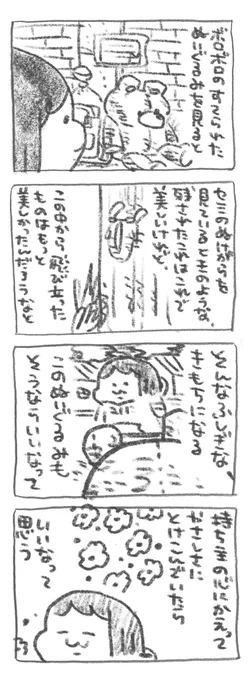 ボロボロのすてられた
ぬいぐるみを見ると
セミのぬけがらを
見ているときのような、
残されたこれはこれで
美しいけれど、
この中から飛び立った
ものはもっと
美しかったんだろうなと
そんなふしぎな
きもちになる
このぬいぐるみも
そうならいいなって
持ち主の心にかえって
やさしさに
とけこんでいたら
いいなって
思う